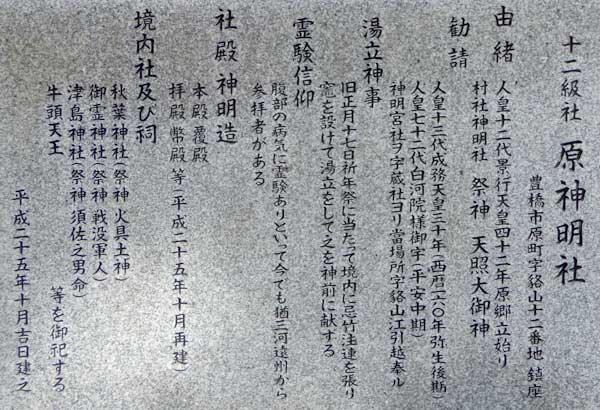 十二級社 原神明社
豊橋市原町字貉山十二番地 鎮座
由緒 人皇十二代景行天皇四十二年原郷立始り
村社神明社 祭神 天照大御神
勧請 人皇十三代成務天皇三十年(西暦一六〇年弥生後期)
人皇七十二代白河院様御宇(平安中期)
神明宮社ヲ字蔵社ヨリ當場所字貉山江引越奉ル
湯立神事 旧正月十七日祈年祭に当たって境内に忌竹注連を張り
竃を設けて湯立をして之を神前に献する
霊験信仰 腹部の病気に霊験ありといって今でも猶三河遠州から
参拝者がある
社殿 神明造
本殿 覆殿
拝殿 幣殿 等(平成二十五年十月再建)
境内社及び祠
秋葉神社(祭神 火具土神)
御霊神社(祭神 戦没軍人)
津島神社(祭神 須佐之男命)
牛頭天王 等を御祀する
平成二十五年十月吉日建之